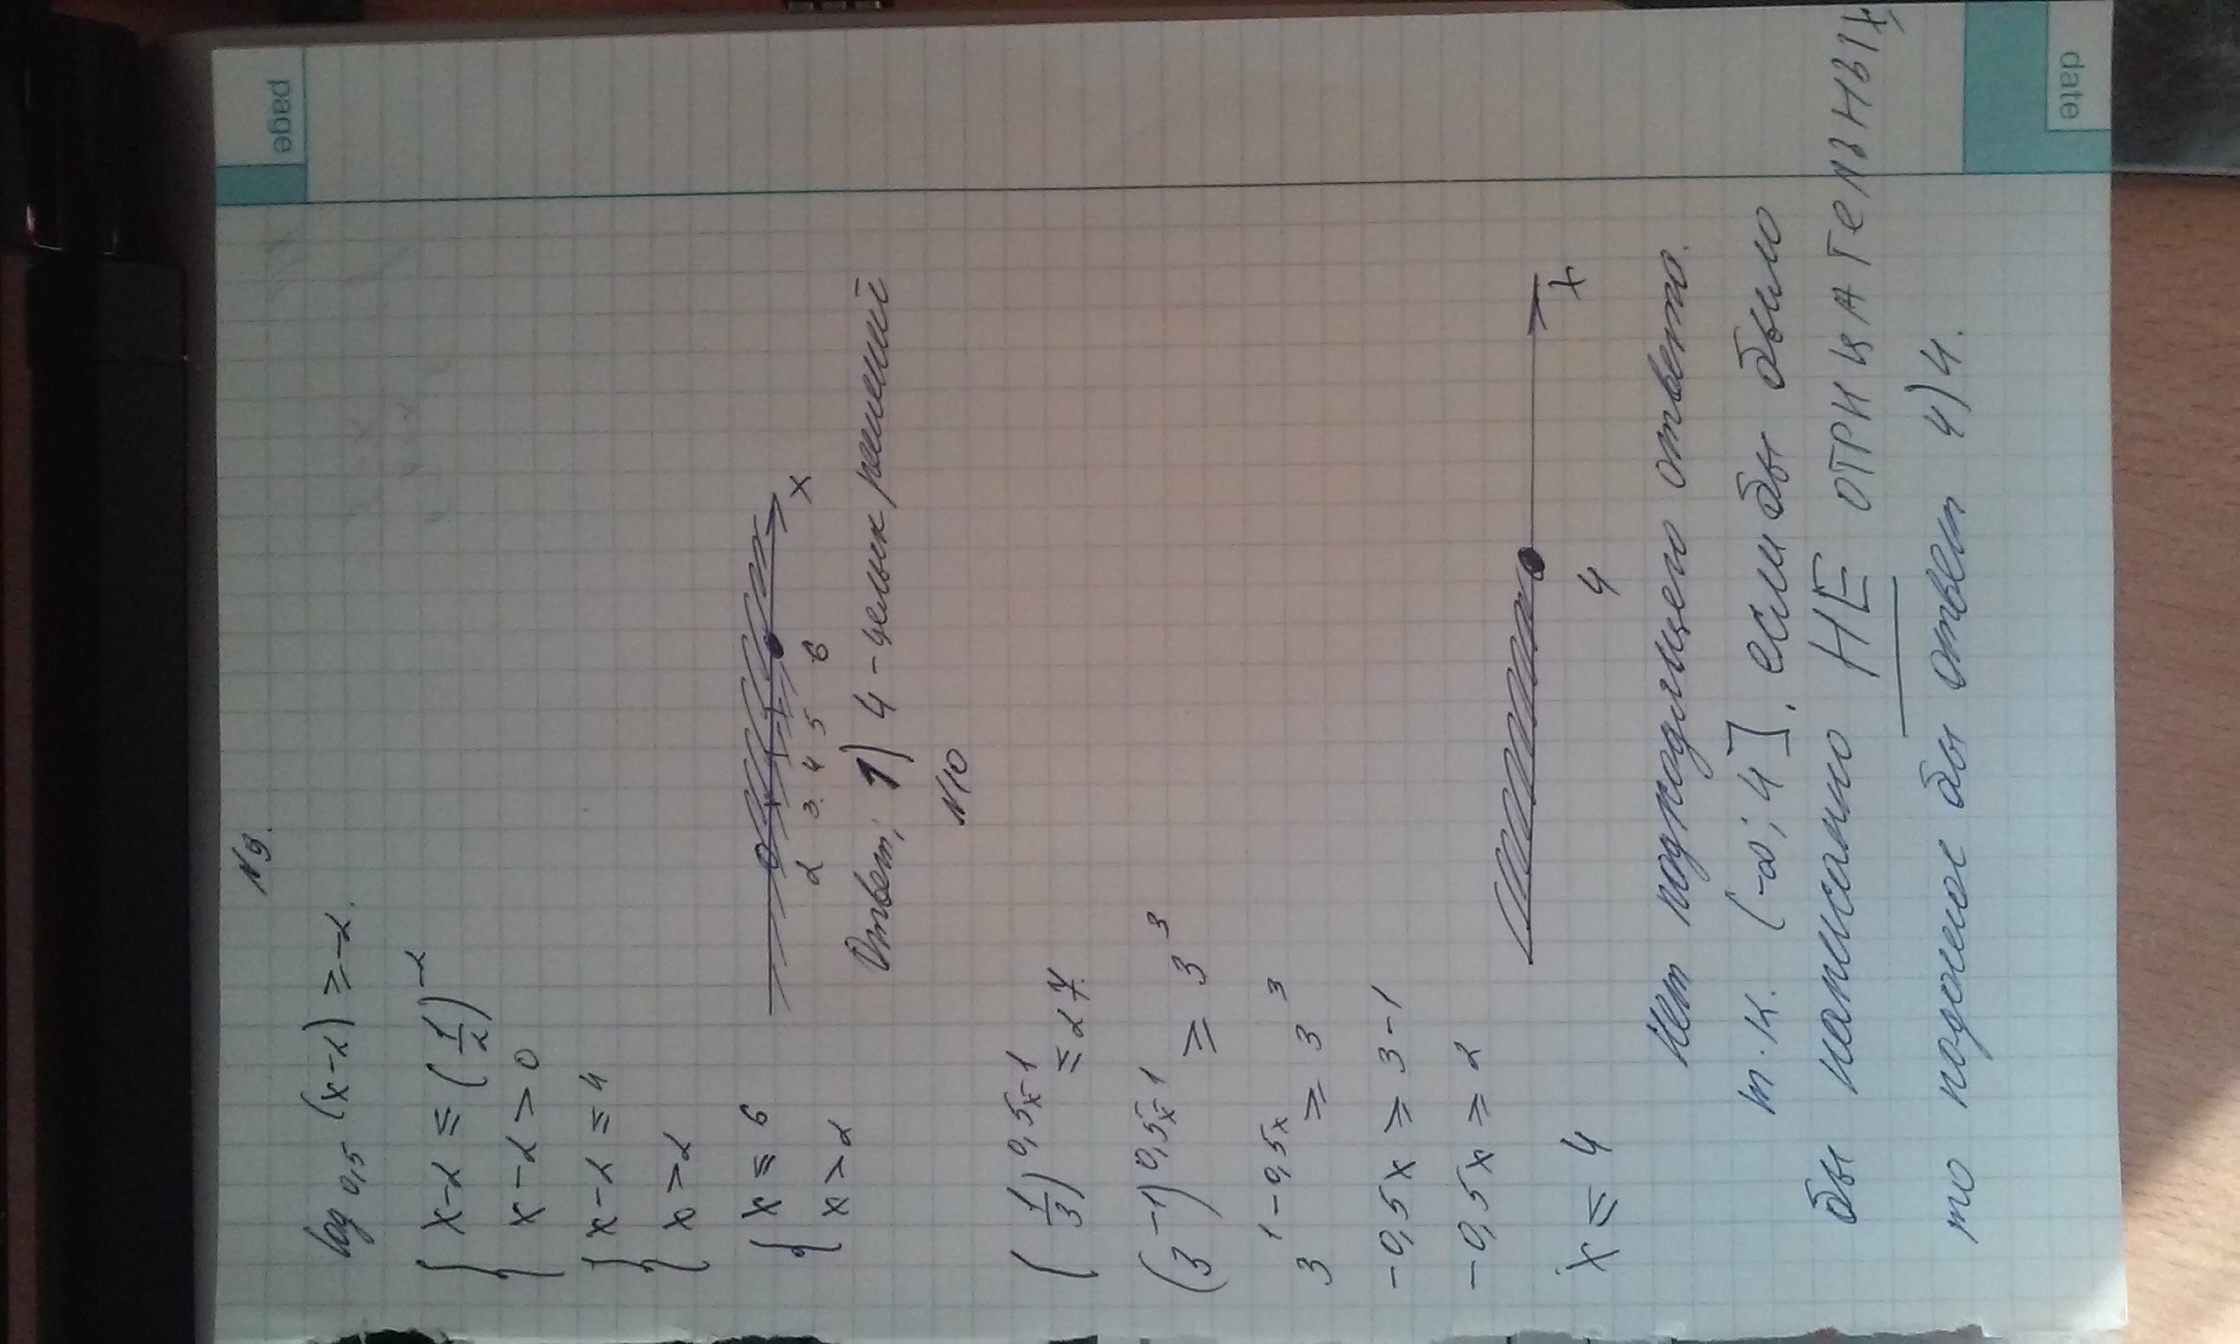 page
date
N9.
log 0,5 (x-2) ≥ -2.
{ x-2 ≤ (1/2)^-2
x-2 > 0
{ x-2 ≤ 4
x > 2
{ x ≤ 6
x > 2
2 3. 4 5 6 x
Ответ; 1) 4 - целых решений
N10
(1/3)^0,5x-1 ≤ 27.
(3^-1)^0,5x-1 ≥ 3^3
3^1-0,5x ≥ 3^3
-0,5x ≥ 3-1
-0,5x ≥ 2
x ≤ 4
4 x
Нет подходящего ответа.
т.к. (-∞; 4]. если бы было
бы написанно НЕ ОТРИЦАТЕЛЬНЫХ,
то подошел бы ответ 4) 4.